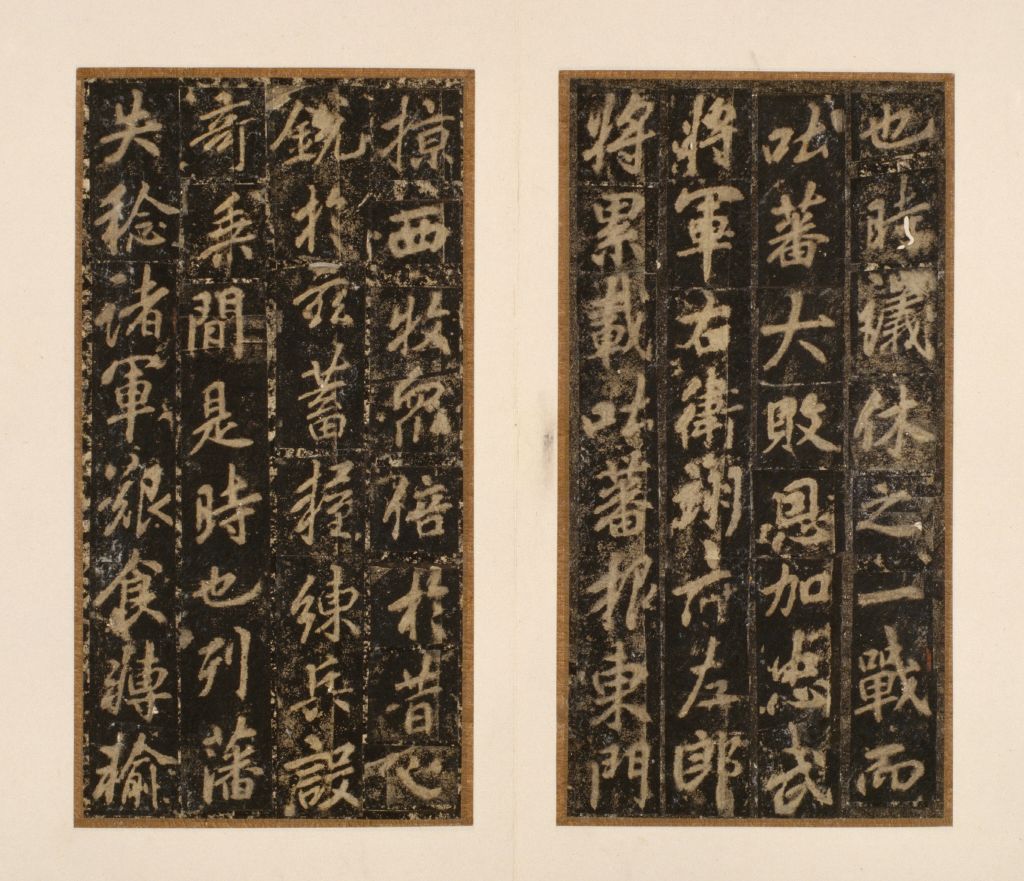 也時議休之一戰而
吐蕃大敗恩加忠武
將軍右衛翊府左郎
將累載吐蕃報東門
掠西牧眾倍於昔心
銳於茲蓄糧練兵設
奇乘間是時也列藩
失稔諸軍艱食轉輸